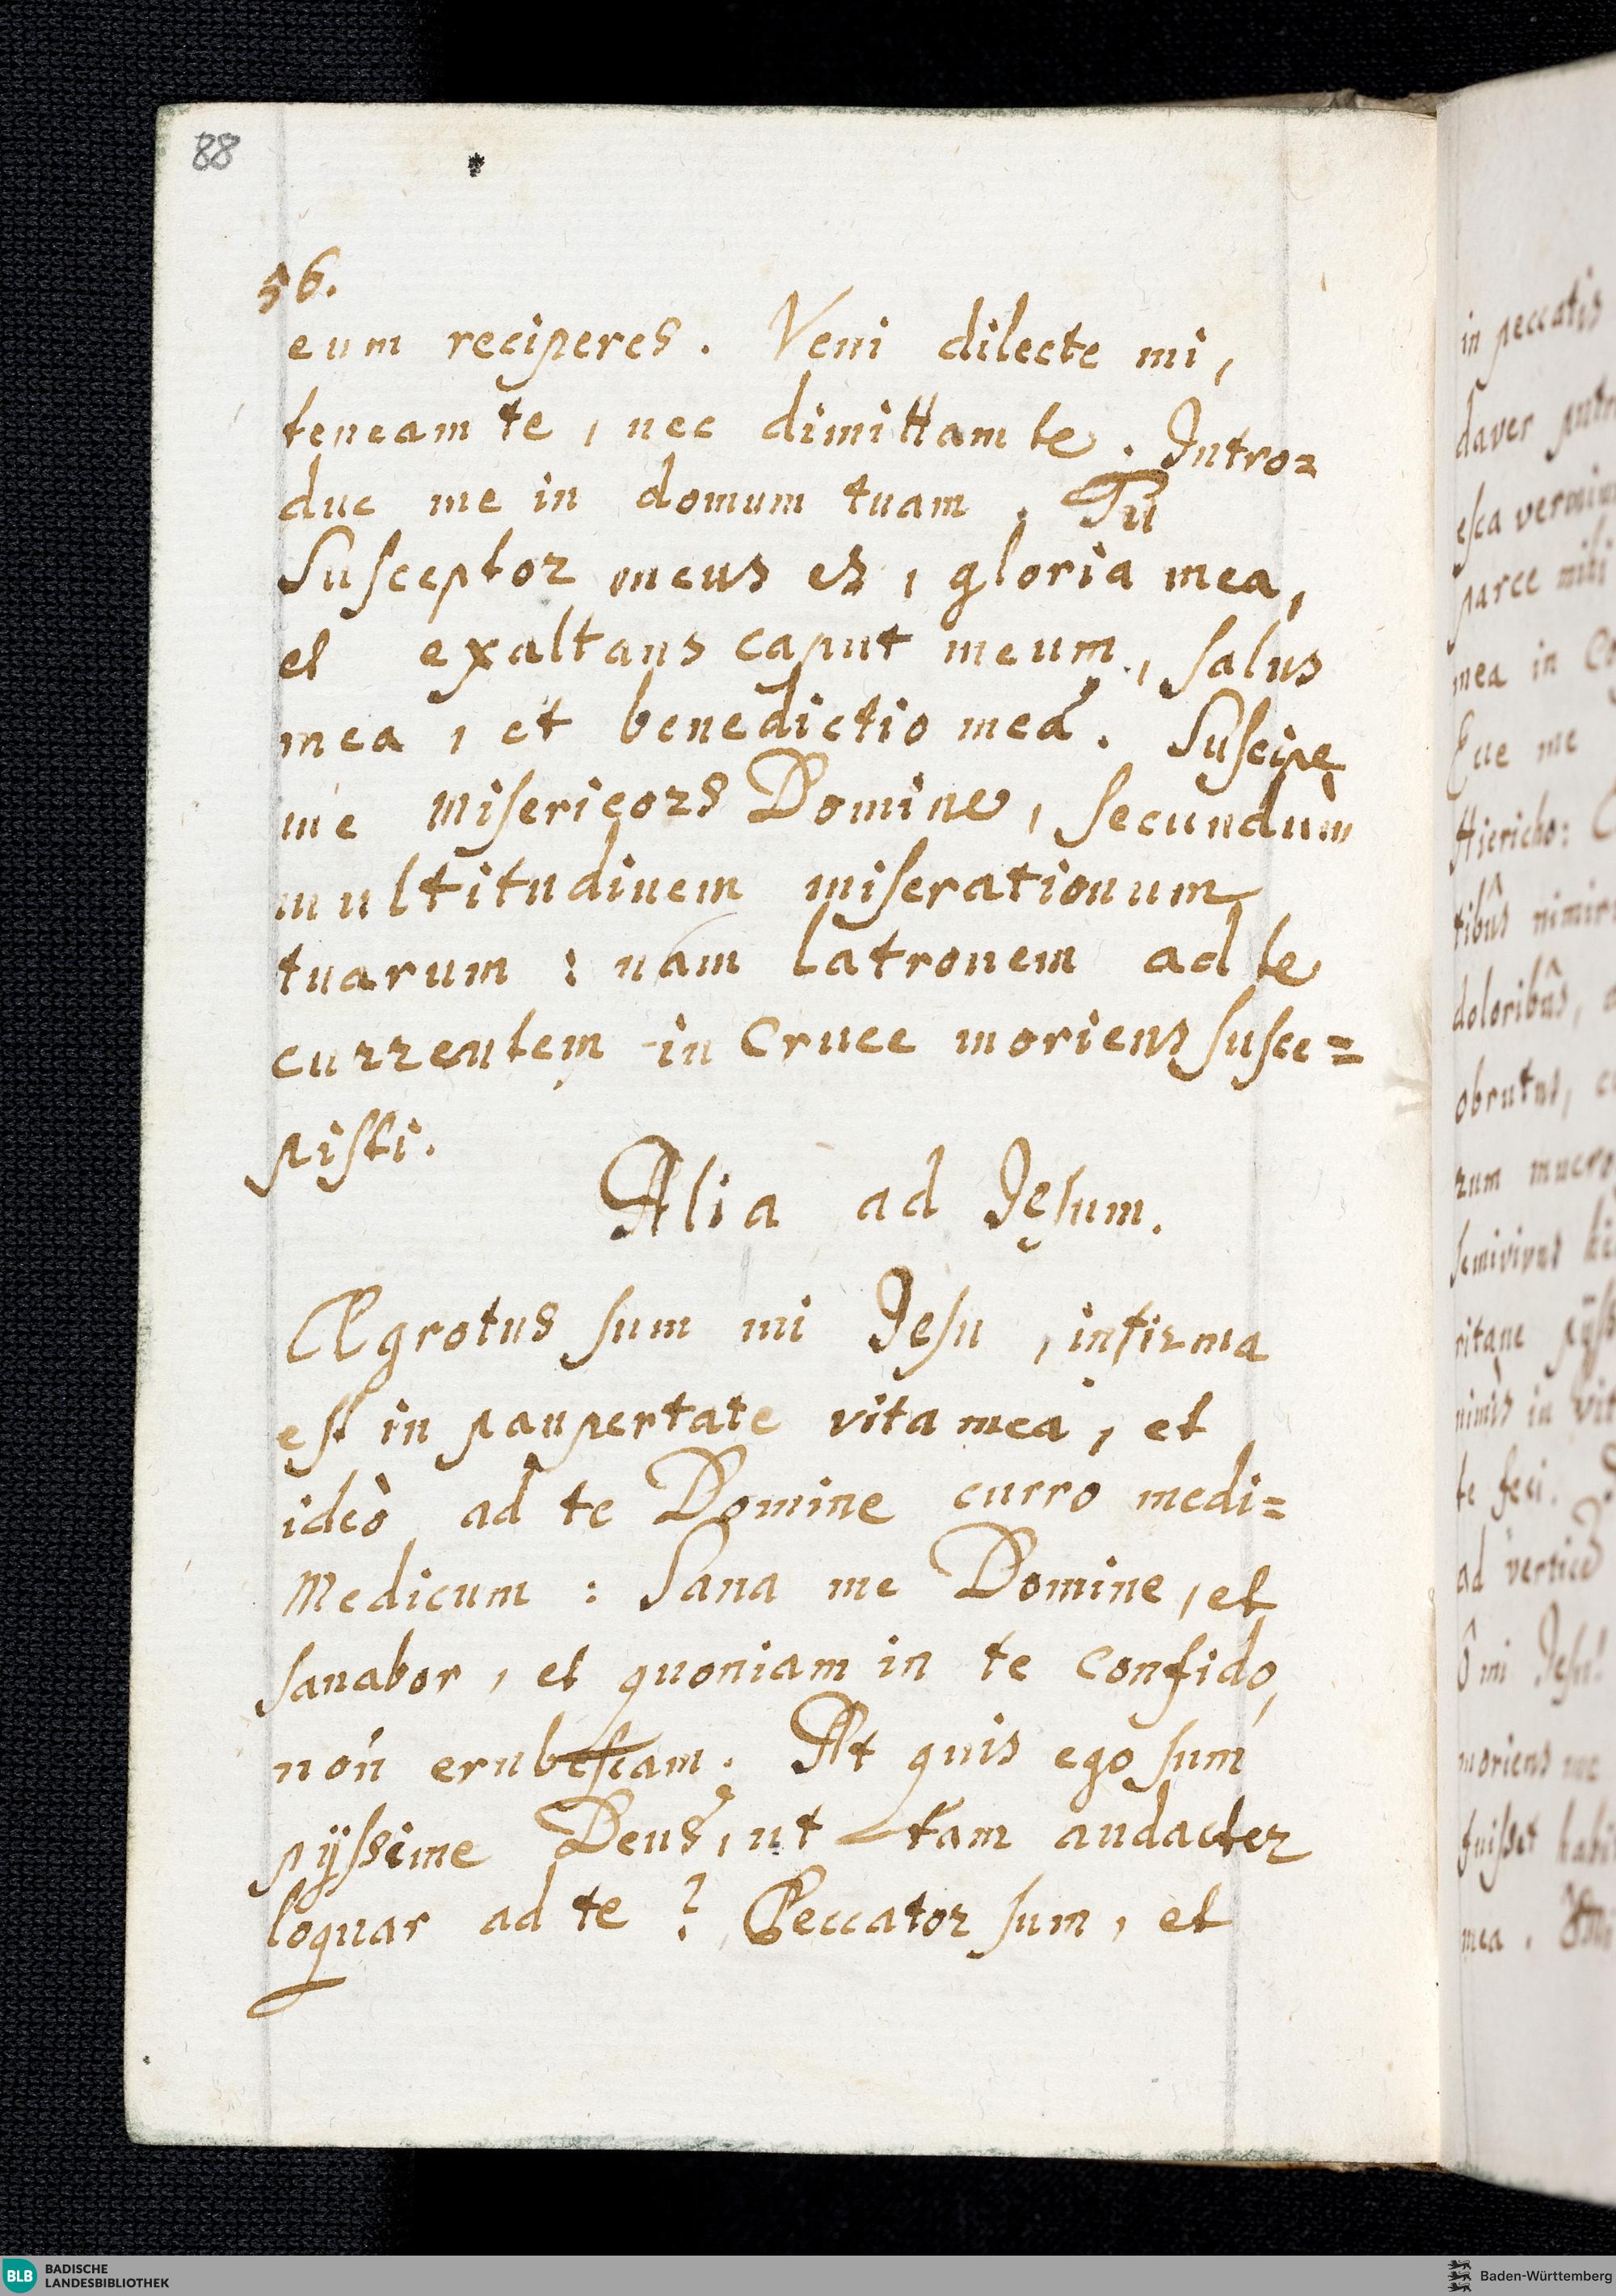 88
56.
eum reciperes. Veni dilecte mi,
teneam te, nec dimittam te. Intro=
duc me in domum tuam. Tu
Susceptor meus es, gloria mea,
et exaltans caput meum, salus
mea, et benedictio mea. Suscipe
me Misericors Domine, secundùm
multitudinem miserationum
tuarum: nam latronem ad te
currentem in Cruce moriens susce=
pisti.
Alia ad Jesum.
Ægrotus sum mi Jesu, infirma
est in paupertate vita mea, et
ideò ad te Domine curro medi=
Medicum: Sana me Domine, et
sanabor, et quoniam in te confido,
non erubescam. At quis ego sum
pijssime Deus, ut tam audacter
loquar ad te? Peccator sum, et
in peccatis
esca
parce mihi
mea in
me
Hiericho:
doloribûs,
obrutus,
semivivus
te feci.
ad
Ô mi Jesu!
moriens me
fuisset
mea.
BLB BADISCHE
LANDESBIBLIOTHEK
Baden-Württemberg